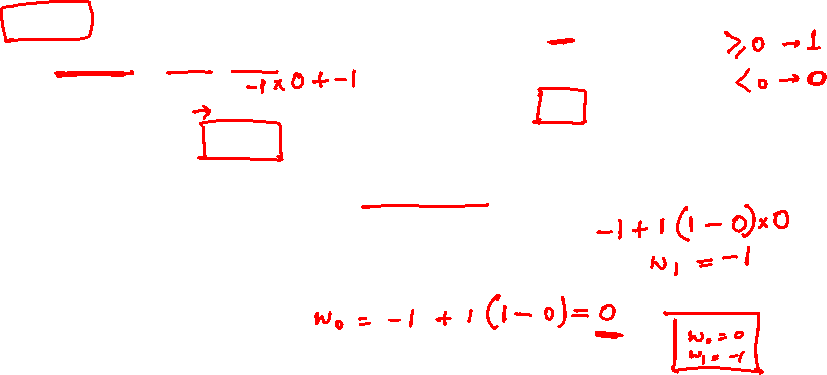 ≥0 → 1
<0 → 0
-1×0+-1
-1+1(1-0)×0
w₁ = -1
w₀ = -1 + 1(1-0)=0
w₀=0
w₁=-1